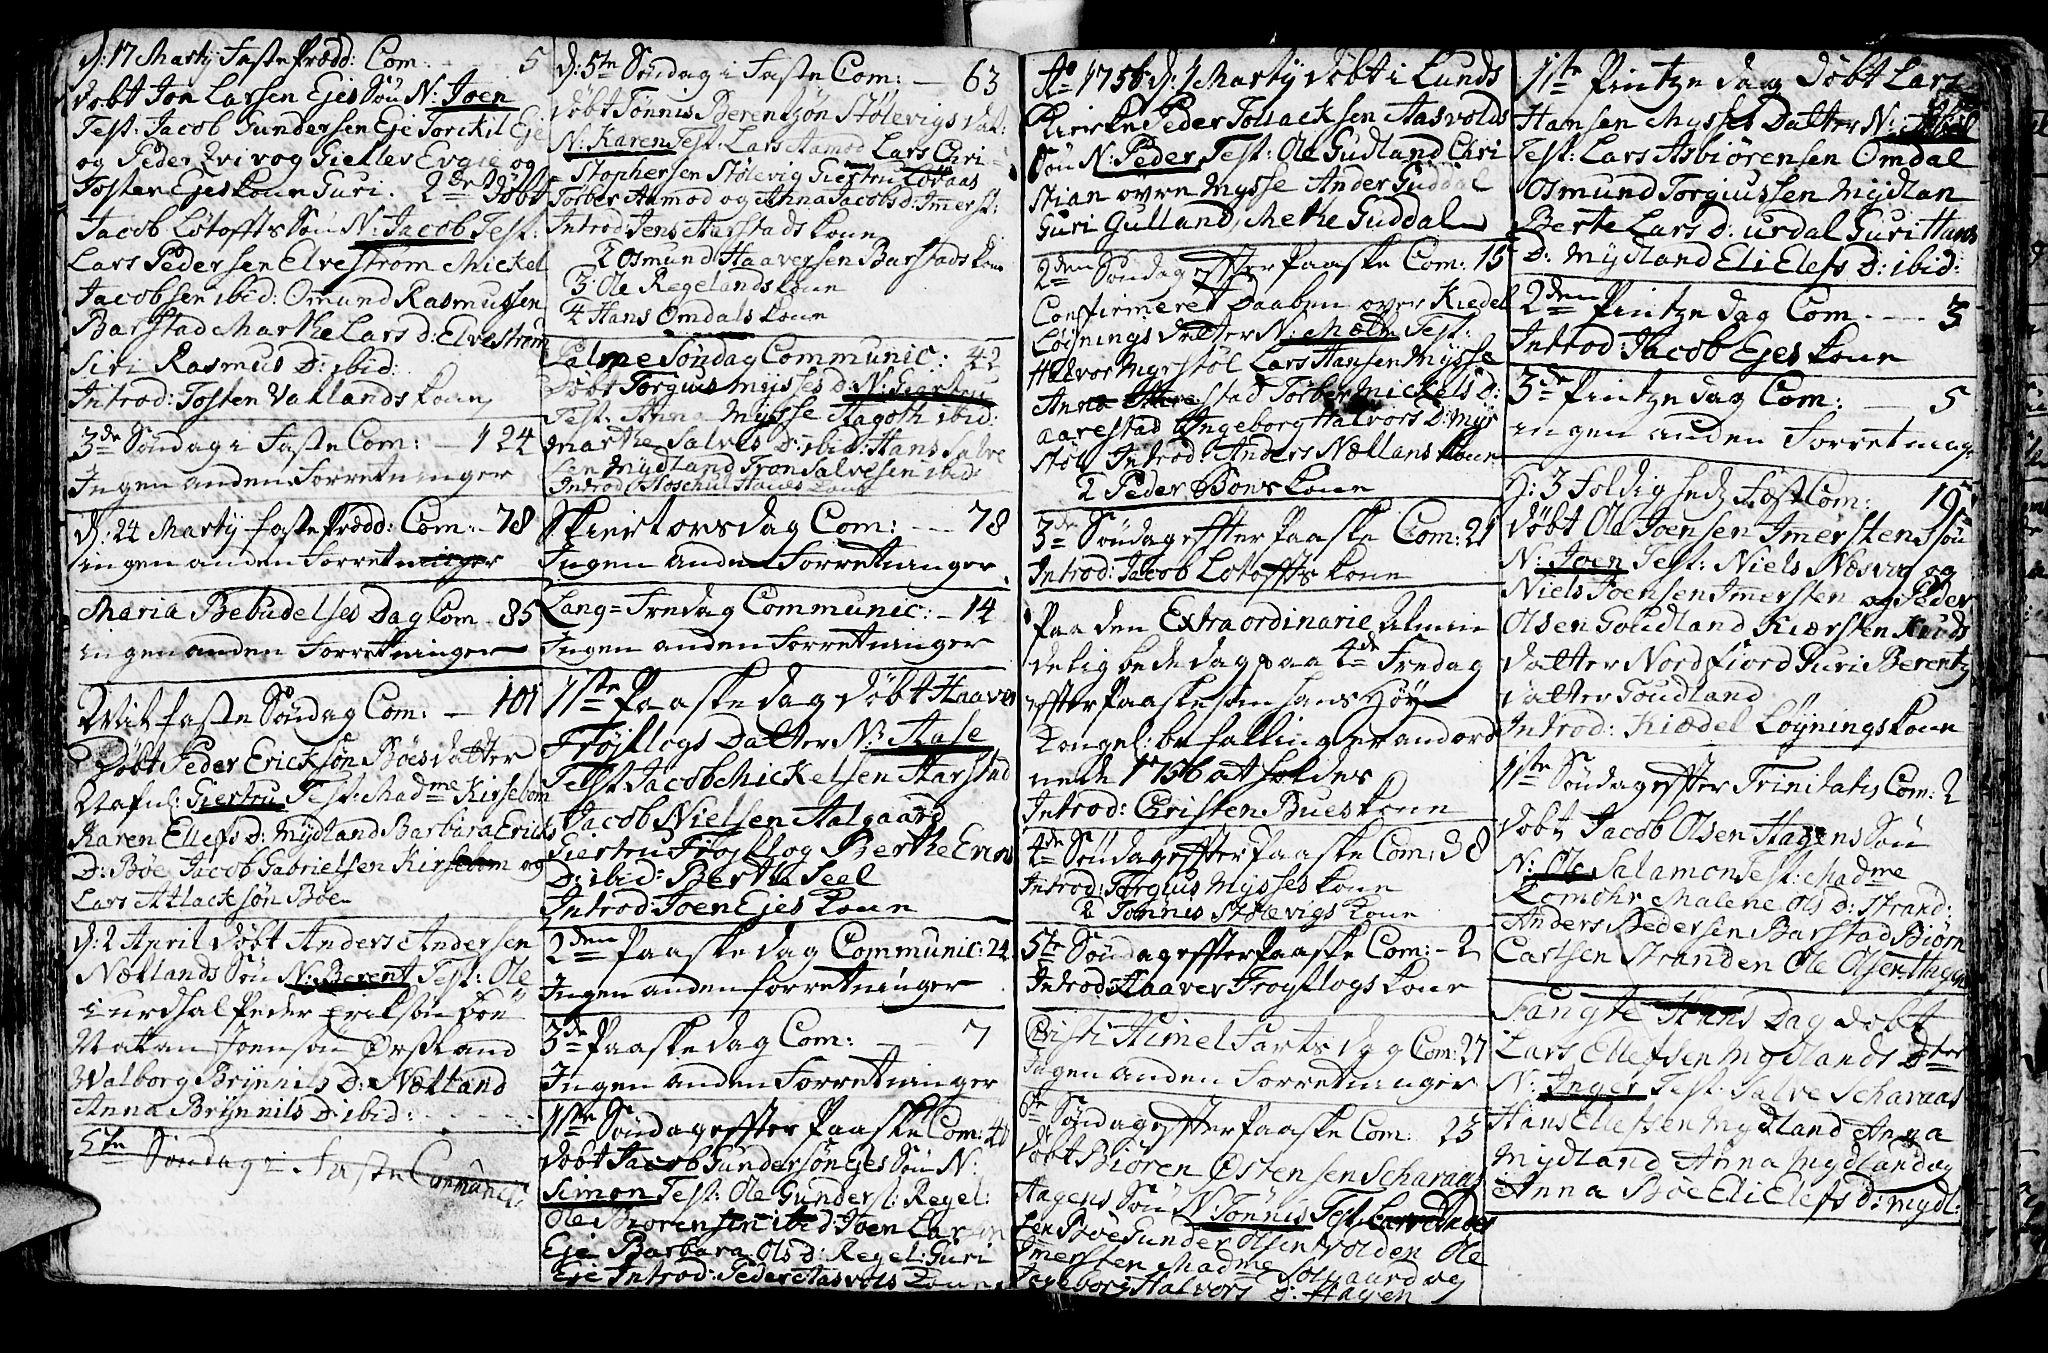 d: 17 Martÿ Faste Prædd: Com: 5
Døbt Jon Larsen Ejes Søn N: Joen
Test: Jacob Gundersen Eje Torckil Eje
og Peder og Gielles og
Tosten Ejes kone Guri. 2de Døbt
Jacob Løtoffts Søn N: Jacob Test:
Lars Pedersen Elvestrøm Mickel
Jacobsen ibid: Omund Rasmussen
Barstad Marthe Lars d: Elvestrøm
Siri Rasmus D: ibid:
Introd: Tosten Vatlands kone
3de Søndag i Faste Com: 124
Ingen anden Forretninger
d: 24 Martÿ faste Prædd: Com: 78
ingen anden Forretninger
Maria Bebudelses Dag Com 85
ingen anden Forretninger
Mit faste Søndag Com: 101
Døbt Peder Ericksøn Böes datter
Nafnl: Giertru Test: Madme Kirsebom
Karen Ellefs D: Mydland Barbara Erichs
D: Böe Jacob Gabrielsen Kirsebom og
Lars Atlacksøn Böe
d: 2 April Døbt Anders Andersen
Nætlands Søn N: Berent Test: Ole
i urdhal Peder Erikson böe
Natan Joenson Ørsland
Walborg Brÿnnils D: Nætland
Anna Brÿnnils D: ibid:
5te Søndag i Faste Communic:
d: 5te Søndag i Faste Com: 63
Døbt Tönnis Berentzøn Stölevigs dat:
N: Karen Test: Lars Aamod Lars Chri
stophersen Stölevig Giertru
Torber Aamod og Anna Jacobs d: Imerst:
Introd Jens Aarstads kone
2 Osmund Haaversen Barstads kone
3 Ole Regelands kone
4 Hans Omdals kone
Palme Søndag Communic: 42
Døbt Torgius Mÿsses D: N:
Test: Anna Mÿsse Aagoth ibid:
Marthe Salves D: ibid: Hans Salve
sen Mÿdland Tron Salvesen ibid:
Introd
Skiertorsdag Com: 78
Ingen anden Forretninger
Lang=Fredag Communic: 14
Ingen anden Forretninger
1ste Paaske dag døbt Haaver
Frøÿflogs Datter N: Aase
Test Jacob Mickelsen Aarstad
Jacob Nielsen Aalgaard
Giertru Frøÿflog Berthe
D: ibid: Berthe Seel
Introd: Joen Ejes kone
2den Paaske dag Communic: 24
Ingen anden forretninger
3de Paaske dag Com: 7
Ingen anden Forretninger
1ste Søndag effter Paaske Com: 40
Døbt Jacob Gundersøn Ejes Søn N:
Simon Test: Ole Gundersl: Regel:
Ole Biorensen ibid: Joen Larsen
Eje Barbara Ols d: Regel: Guri
Eje Introd: Peder Aasvols kone
Ao 1756 d: 1 Martÿ Døbt i Lunds
Kiercke Peder Tollacksen Aasvolds
Søn N: Peder Test: Ole Gudland Chri
stian øvre Mysse Ander Guddal
Guri Gulland, Methe Guddal
2den Søndag effter Paaske Com: 15
Confirmeret Daaben over Kiedel
Løÿnings datter N: Test:
Halvor Mÿrstøl Lars Hansen Mÿsse
Anna stad Torber Mickels d:
aarestad Ingeborg Halvors D: Mÿr
støl Introd: Anders Nætlans kone
2 Peder Böes kone
3de Søndag effter Paaske Com: 21
Introd: Jacob Løtoffts kone
Paa den Extraordinarie almin
delig bede dag paa 4de Fredag
effter Paaske som hans Höÿ
Kongel: befalling er anord
nede 1756 at holdes
Introd: Christen Bues kone
4de Søndag effter Paaske Com: 38
Introd: Torgius Mÿsses kone
2 Tönnis Stölevigs kone
5te Søndag effter Paaske Com: 2
Introd: Haaver Froÿflogs kone
Christi Himel Farts dag Com: 27
Ingen anden Forretninger
6te Søndag effter Paaske Com: 23
Døbt Biören Østensen Scharaas
Aagens Søn N: Tönnis Test:
sen Böe Gunder Olsen volden Ole
Imersten Madme Solgaard og
Ingeborg Halvors D: Hagen
1ste Pintze dag døbt Lars
Hansen Mÿsses Datter N:
Test: Lars Asbiörensen Omdal
Osmund Torgiussen Mÿdlan
Berte Lars D: urdal Guri Hans
D: Mÿdland Eli Elefs D: ibid:
2den Pintze dag Com 3
Introd: Jacob Ejes kone
3de Pintze dag Com: 5
ingen anden Forretninge
H: 3 foldigheds Fest Com: 19
Døbt Ole Joensen Imerstens søn
N: Joen Test: Niels Næsvig og
Niels Joensen Imersten og Peder
Olsen Goudland Kiersten Knuds
datter Nordfiord Guri Berentz
datter Goudland
Introd: Kiædel Løÿnings kone
1ste Søndag effter Trinitatis Com: 2
Døbt Jacob Olsen Hagens Søn
N: Ole Salamon Test: Madme
Lomohr Malene Ols D: Strand:
Anders Pedersen Barstad Biørn
Carlsen Stranden Ole Olsen Hagen
Sangte Hans Dag døbt
Lars Ellefsen Mÿdlands Dter
N: Inger Test: Salve Scharaas
Hans Ellefsen Mÿdland Anna
Mÿdland Anna Mÿdland og
Anna Böe Eli Elefs d: mÿdl: